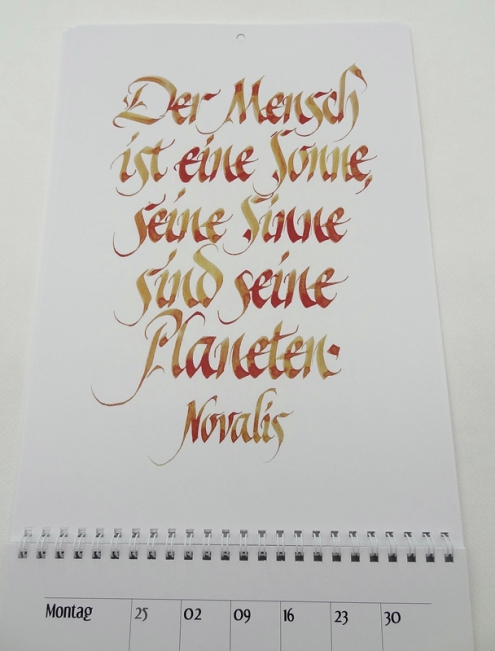 Der Mensch
ist eine Sonne,
seine Sinne
sind seine
Planeten.
Novalis
Montag 25 02 09 16 23 30